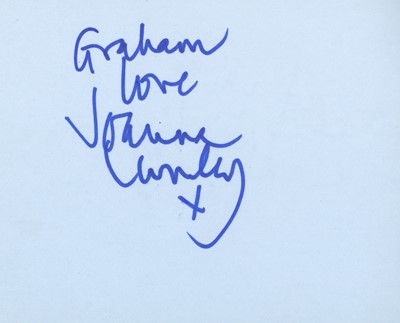 Graham
love
Joanna
Lumley
x